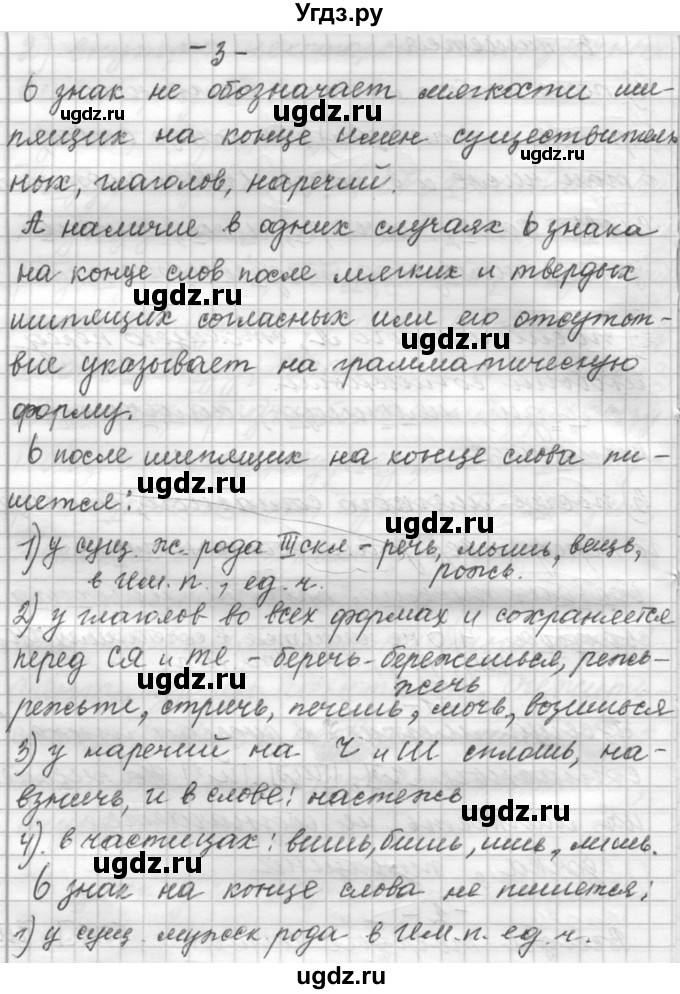 Угдз.ру
- 3 -
Ь знак не обозначает мягкости ши-
пящих на конце имен существитель
ных, глаголов, наречий.
А наличие в одних случаях Ь знака
на конце слов после мягких и твердых
шипящих согласных или его отсутст-
вие указывает на грамматическую
форму.
Ь после шипящих на конце слова пи-
шется:
1) у сущ. ж. рода III скл - речь, мышь, вещь,
в Им. п., ед. ч. рожь.
2) у глаголов во всех формах и сохраняется
перед СЯ и ТЕ - беречь - бережешься, режь -
жечь
режьте, стричь, печешь, мочь, возишься
3) у наречий на Ч и Ш сплошь, на-
взничь, и в слове: настежь
4). в частицах: вишь, бишь, ишь, лишь.
Ь знак на конце слова не пишется:
1) у сущ. мужск рода в Им. п. ед. ч.
ugdz.ru
ugdz.ru
ugdz.ru
ugdz.ru
ugdz.ru
ugdz.ru
ugdz.ru
ugdz.ru
ugdz.ru
ugdz.ru
ugdz.ru
ugdz.ru
ugdz.ru
ugdz.ru